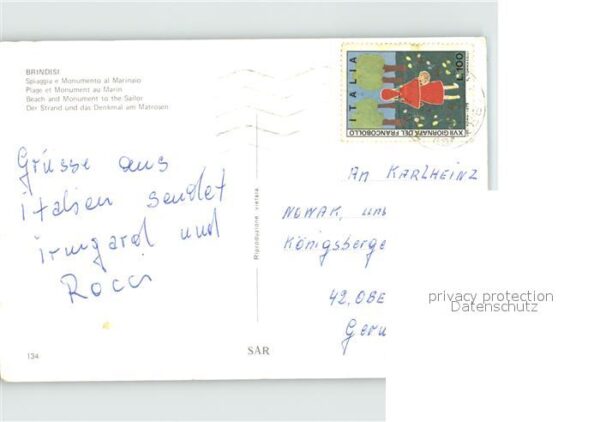 BRINDISI
Spiaggia e Monumento al Marinaio
Plage et Monument au Marin
Beach and Monument to the Sailor
Der Strand und das Denkmal am Matrosen
Grüsse aus
italien sendet
irmgard und
Rocci
134
SAR
Riproduzione vietata
ITALIA
L.100
XVII GIORNATA DEL FRANCOBOLLO
An KARLHEINZ
NOWAK, und
Königsberge
42, OBE
Germ
privacy protection
Datenschutz